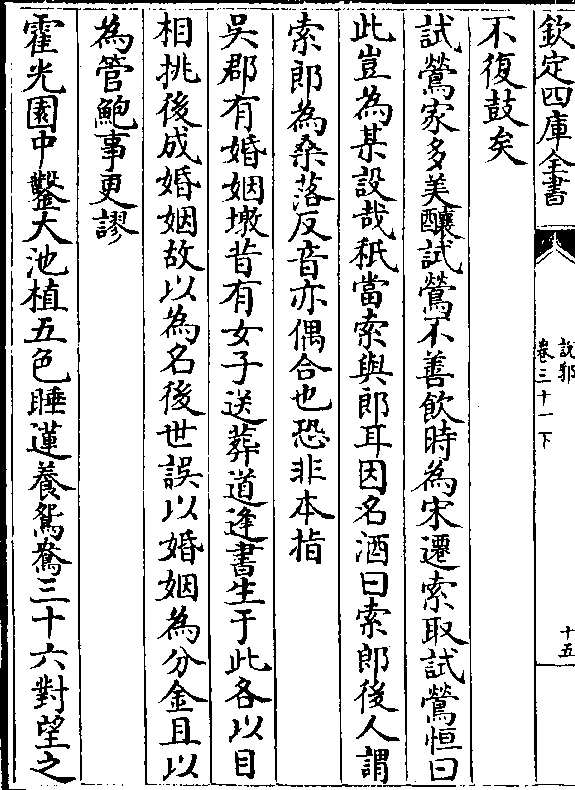 欽定四庫全書
說郛
卷三十一下
十五
不復鼓矣
試鶯家多美釀試鶯不善飲時為宋遷索取試鶯恒曰
此豈為某設哉秖當索與郎耳因名酒曰索郎後人謂
索郎為桑落反音亦偶合也恐非本指
吳郡有婚姻墩昔有女子送葬道逢書生于此各以目
相挑後成婚姻故以為名後世誤以婚姻為分金且以
為管鮑事更謬
霍光園中鑿大池植五色睡蓮養鴛鴦三十六對望之